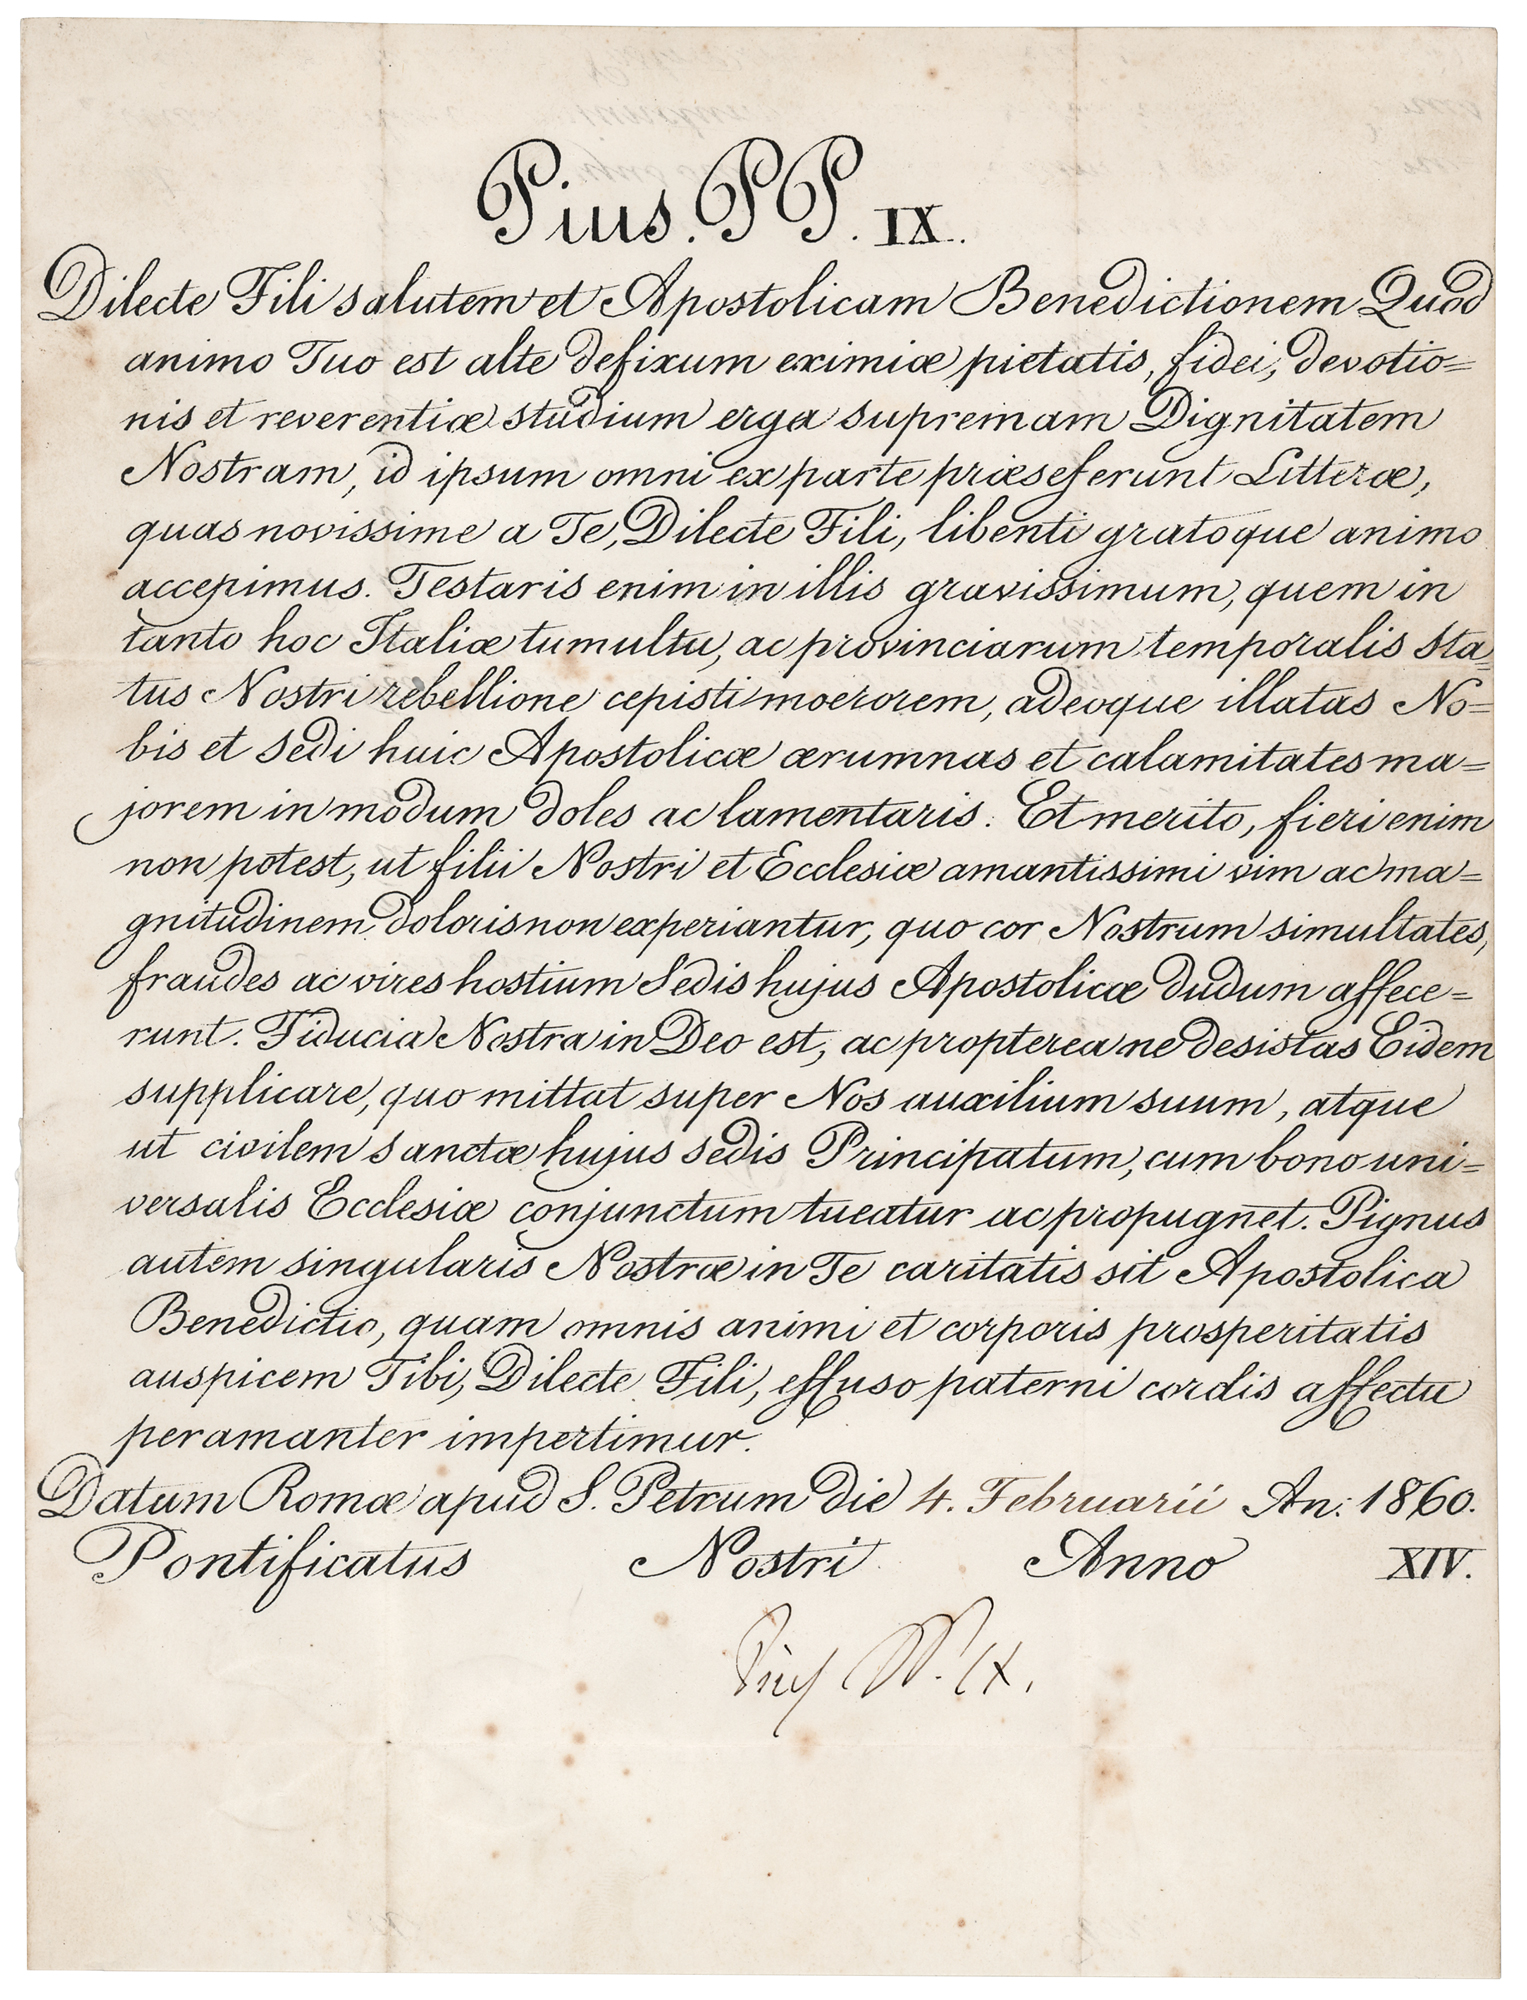 Pius. PP. IX.
Dilecte Fili salutem et Apostolicam Benedictionem Quod
animo Tuo est alte defixum eximiæ pietatis, fidei, devotio=
nis et reverentiæ studium erga supremam Dignitatem
Nostram, id ipsum omni ex parte præseferunt Litteræ,
quas novissime a Te, Dilecte Fili, libenti gratoque animo
accepimus. Testaris enim in illis gravissimum, quem in
tanto hoc Italiæ tumultu, ac provinciarum temporalis Sta=
tus Nostri rebellione cepisti moerorem, adeoque illatas No=
bis et Sedi huic Apostolicæ ærumnas et calamitates ma=
jorem in modum doles ac lamentaris. Et merito, fieri enim
non potest, ut filii Nostri et Ecclesiæ amantissimi vim ac ma=
gnitudinem doloris non experiantur, quo cor Nostrum simultates,
fraudes ac vires hostium Sedis hujus Apostolicæ dudum affece=
runt. Fiducia Nostra in Deo est, ac propterea ne desistas Eidem
supplicare, quo mittat super Nos auxilium suum, atque
ut civilem sanctæ hujus sedis Principatum, cum bono uni=
versalis Ecclesiæ conjunctum tueatur ac propugnet. Pignus
autem singularis Nostræ in Te caritatis sit Apostolica
Benedictio, quam omnis animi et corporis prosperitatis
auspicem Tibi, Dilecte Fili, effuso paterni cordis affectu
peramanter impertimur.
Datum Romæ apud S. Petrum die 4. Februarii An: 1860.
Pontificatus Nostri Anno XIV.
Pius PP. IX.